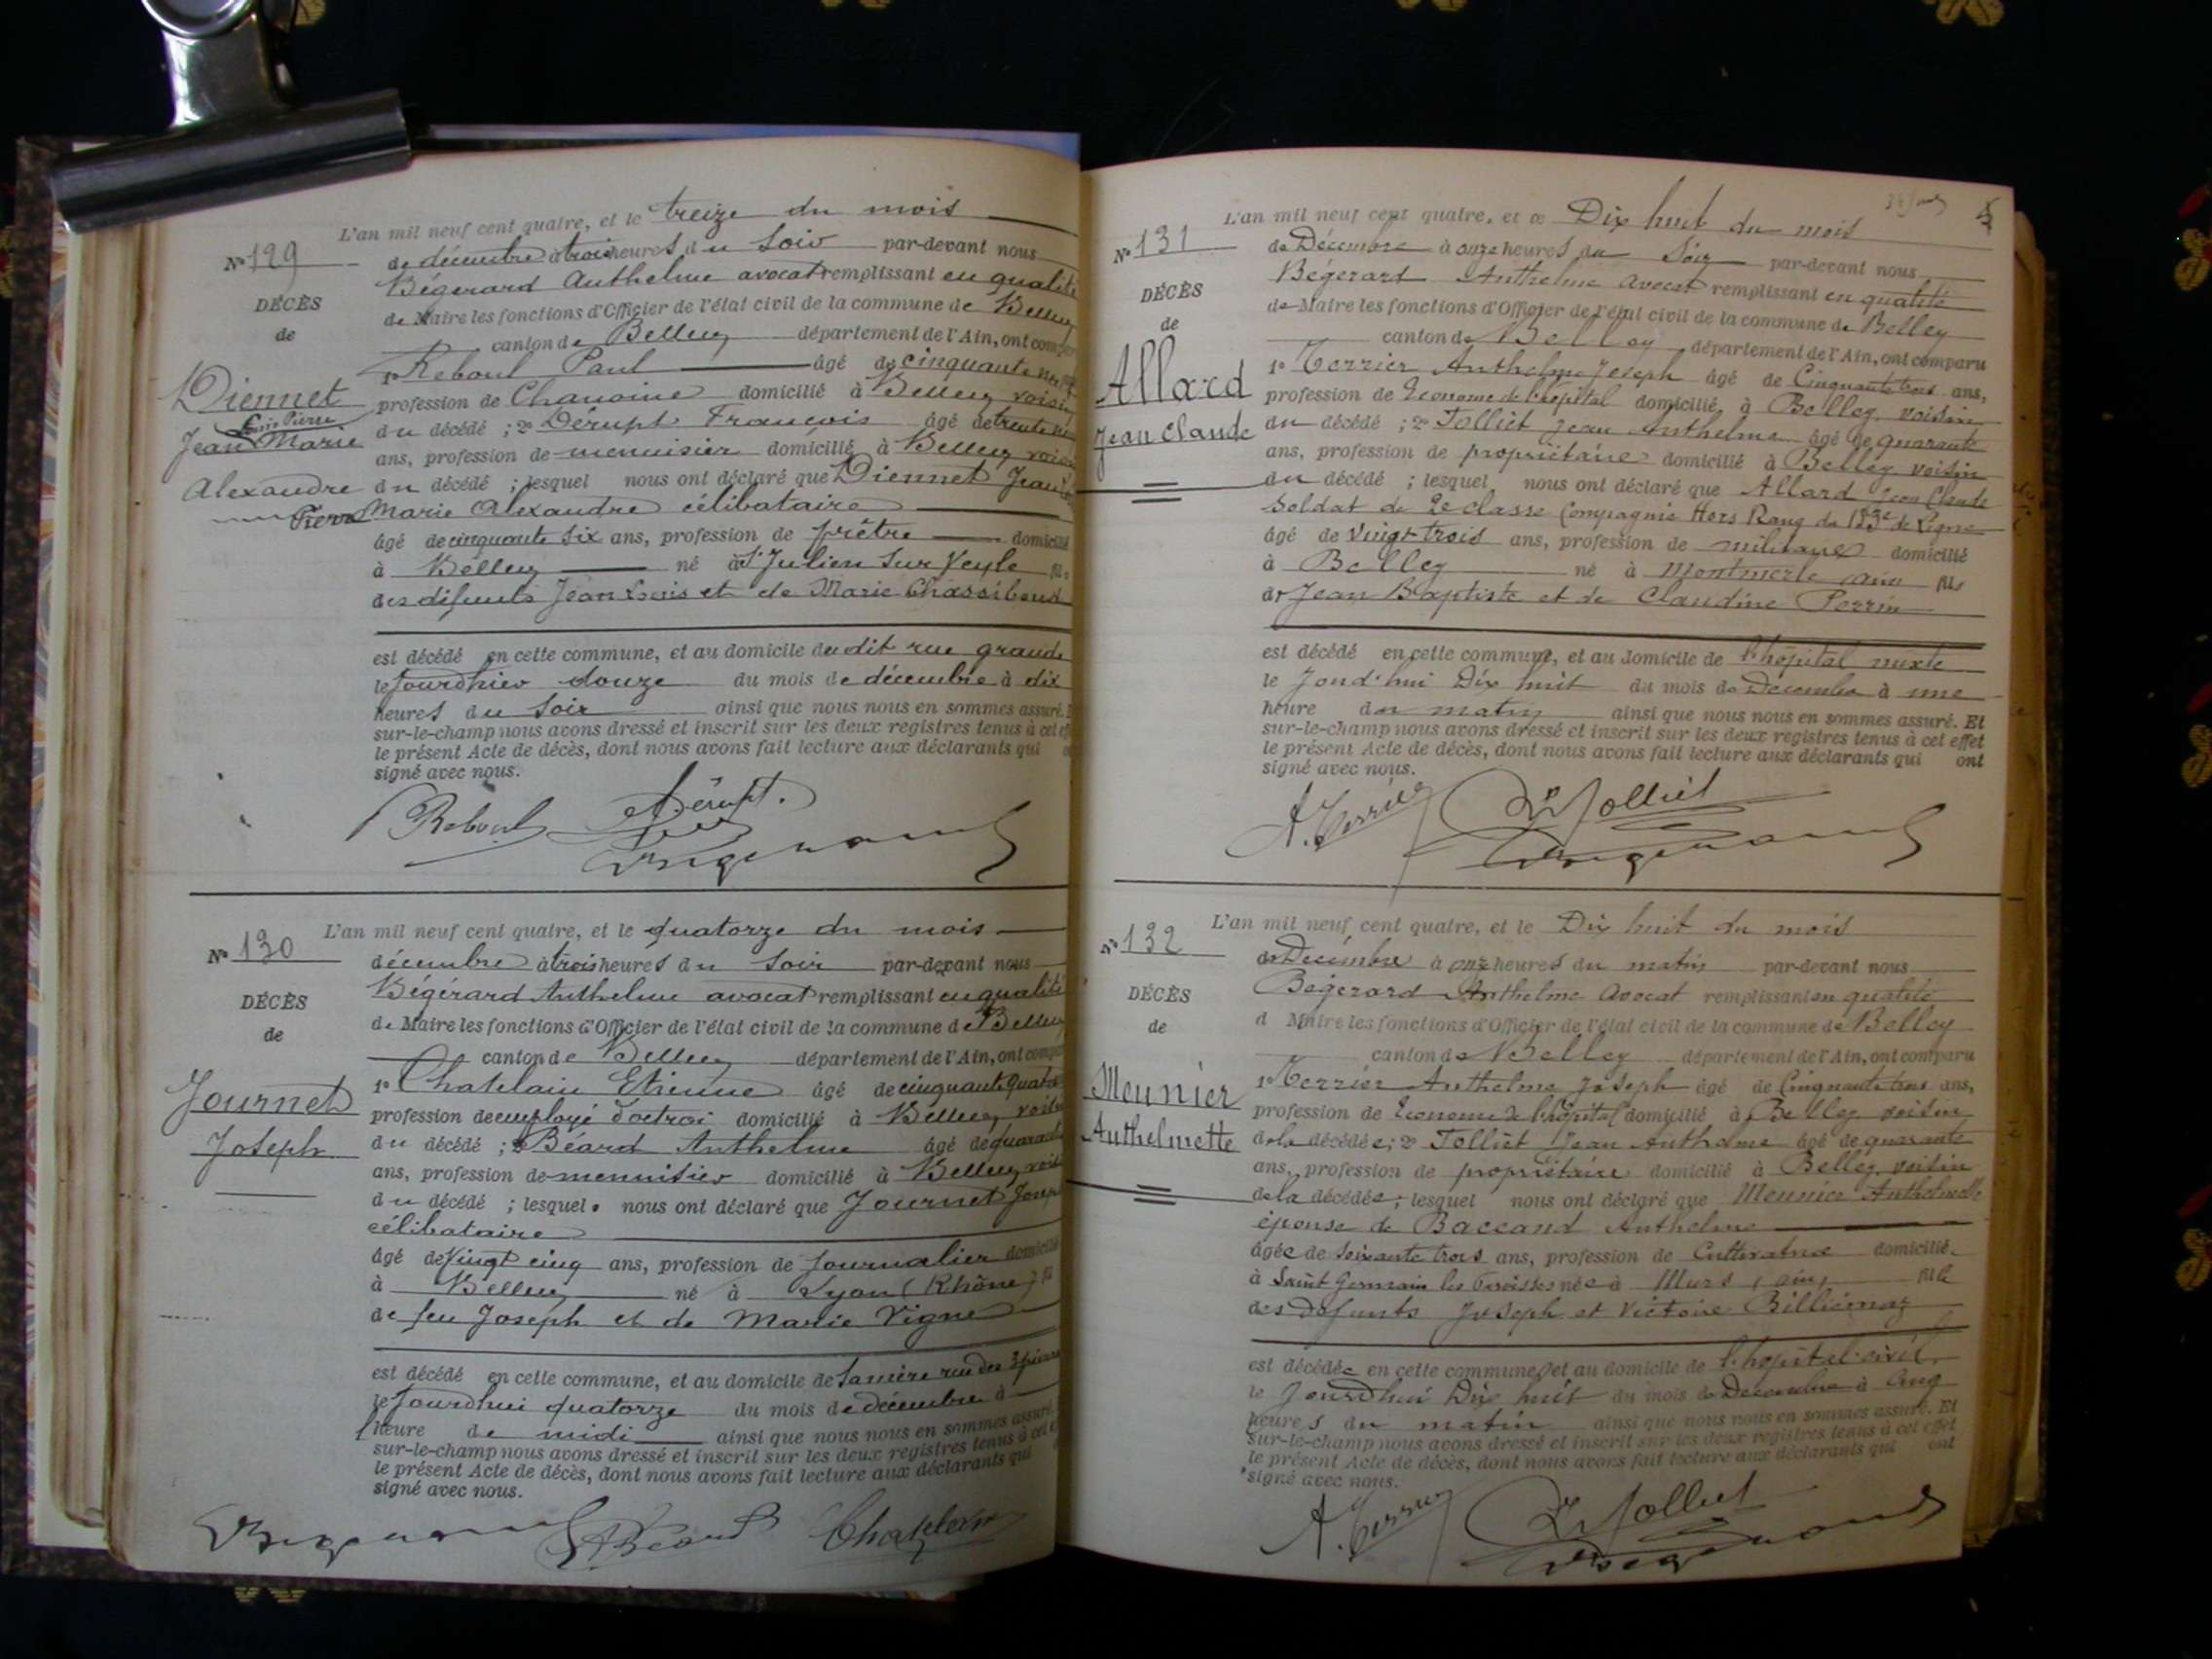 L'an mil neuf cent quatre, et le treize du mois
No 129
de décembre à trois heures du soir par-devant nous
Bégerard Anthelme avocat remplissant en qualité
DÉCÈS
de Maire les fonctions d'Officier de l'état civil de la commune de Belley
de
canton de Belley département de l'Ain, ont comparu
1o Reboul Paul âgé de cinquante
Diennet
profession de Chanoine domicilié à Belley voisin
Louis Pierre
Jean Marie
du décédé ; 2o Dérupt François âgé de trente
ans, profession de menuisier domicilié à Belley voisin
Alexandre
du décédé ; lesquel nous ont déclaré que Diennet Jean
Pierre
Marie Alexandre célibataire
âgé de cinquante six ans, profession de prêtre domicilié
à Belley né à St Julien sur Veyle fils
des défunts Jean Louis et de Marie Chassiboud
est décédé en cette commune, et au domicile du dit rue grande
le jourdhier douze du mois de décembre à dix
heures du soir ainsi que nous nous en sommes assuré. Et
sur-le-champ nous avons dressé et inscrit sur les deux registres tenus à cet effet
le présent Acte de décès, dont nous avons fait lecture aux déclarants qui
signé avec nous.
Reboul Dérupt.
Bégerard
L'an mil neuf cent quatre, et le quatorze du mois
No 130
décembre à trois heures du soir par-devant nous
Bégérard Anthelme avocat remplissant en qualité
DÉCÈS
de Maire les fonctions d'Officier de l'état civil de la commune de Belley
de
canton de Belley département de l'Ain, ont comparu
Journet
1o Chatelain Etienne âgé de cinquante quatre
profession de employé d'octroi domicilié à Belley, voisin
Joseph
du décédé ; 2o Béard Anthelme âgé de quarante
ans, profession de menuisier domicilié à Belley, voisin
du décédé ; lesquel nous ont déclaré que Journet Joseph
célibataire
âgé de vingt cinq ans, profession de journalier domicilié
à Belley né à Lyon (Rhône) fils
de feu Joseph et de Marie Vigne
est décédé en cette commune, et au domicile de sa mère rue des 3 pierres
le jourdhui quatorze du mois de décembre à
1 heure de midi ainsi que nous nous en sommes assuré.
sur-le-champ nous avons dressé et inscrit sur les deux registres tenus à cet
le présent Acte de décès, dont nous avons fait lecture aux déclarants qui
signé avec nous.
Bégerard A Béard Chatelain
L'an mil neuf cent quatre, et ce Dix huit du mois
No 131
de Décembre à onze heures du soir par-devant nous
Bégerard Anthelme avocat remplissant en qualité
DÉCÈS
de Maire les fonctions d'Officier de l'état civil de la commune de Belley
de
canton de Belley département de l'Ain, ont comparu
Allard
1o Terrier Anthelme Joseph âgé de Cinquante trois ans,
profession de Econome de l'hopital domicilié à Belley voisin
Jean Claude
du décédé ; 2o Tolliet Jean Anthelme âgé de quarante
ans, profession de propriétaire domicilié à Belley voisin
du décédé ; lesquel nous ont déclaré que Allard Jean Claude
Soldat de 2e classe Compagnie Hors Rang du 133e de Ligne
âgé de vingt trois ans, profession de militaire domicilié
à Belley né à Montmerle ain fils
de Jean Baptiste et de Claudine Perrin
est décédé en cette commune, et au domicile de l'hopital mixte
le Jourd'hui Dix huit du mois de Décembre à une
heure du matin ainsi que nous nous en sommes assuré. Et
sur-le-champ nous avons dressé et inscrit sur les deux registres tenus à cet effet
le présent Acte de décès, dont nous avons fait lecture aux déclarants qui ont
signé avec nous.
A. Terrier Tolliet
Bégerard
L'an mil neuf cent quatre, et le Dix huit du mois
No 132
de Décembre à onze heures du matin par-devant nous
Bégerard Anthelme Avocat remplissant en qualité
DÉCÈS
d Maire les fonctions d'Officier de l'état civil de la commune de Belley
de
canton de Belley département de l'Ain, ont comparu
Meunier
1o Terrier Anthelme Joseph âgé de Cinquante trois ans,
profession de Econome de l'hopital domicilié à Belley voisin
Anthelmette
de la décédée ; 2o Tolliet Jean Anthelme âgé de quarante
ans, profession de propriétaire domicilié à Belley voisin
de la décédée ; lesquel nous ont déclaré que Meunier Anthelmette
épouse de Baccand Anthelme
âgée de soixante trois ans, profession de Cultivatrice domicilié
à Saint Germain les Paroisses née à Murs, ain, fille
des defunts Joseph et Victoire Billiémaz
est décédée en cette commune, et au domicile de l'hopital civil,
le Jourdhui Dix huit du mois de Décembre à Cinq
heures du matin ainsi que nous nous en sommes assuré. Et
sur-le-champ nous avons dressé et inscrit sur les deux registres tenus à cet effet
le présent Acte de décès, dont nous avons fait lecture aux déclarants qui ont
signé avec nous.
A. Terrier Tolliet
Bégerard